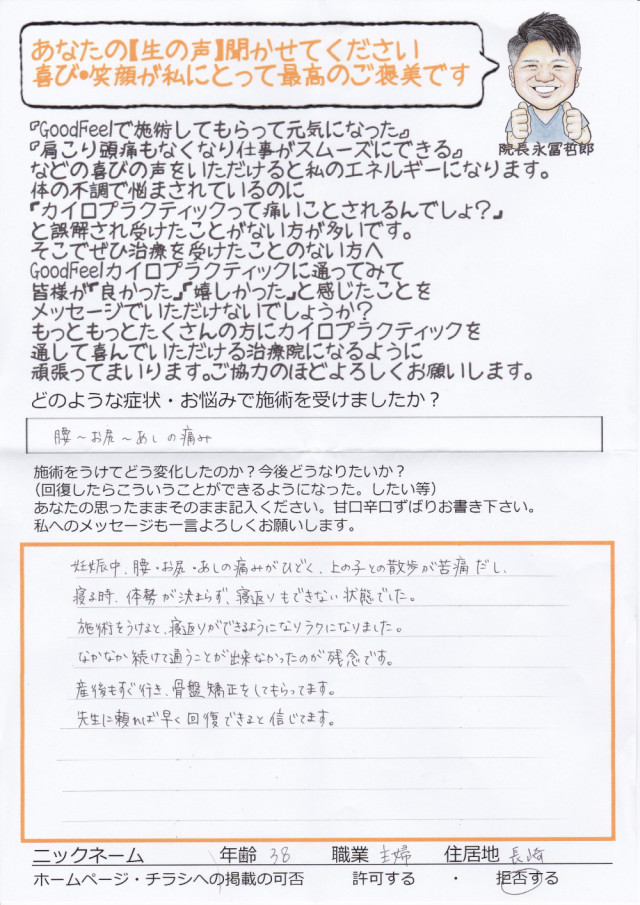 あなたの【生の声】聞かせてください
喜び・笑顔が私にとって最高のご褒美です
院長永冨哲郎
『GoodFeelで施術してもらって元気になった』
『肩こり頭痛もなくなり仕事がスムーズにできる』
などの喜びの声をいただけると私のエネルギーになります。
体の不調で悩まされているのに
「カイロプラクティックって痛いことされるんでしょ？」
と誤解され受けたことがない方が多いです。
そこでぜひ治療を受けたことのない方へ
GoodFeelカイロプラクティックに通ってみて
皆様が「良かった」「嬉しかった」と感じたことを
メッセージでいただけないでしょうか？
もっともっとたくさんの方にカイロプラクティックを
通して喜んでいただける治療院になるように
頑張ってまいります。ご協力のほどよろしくお願いします。
どのような症状・お悩みで施術を受けましたか？
腰～お尻～あしの痛み
施術をうけてどう変化したのか？今後どうなりたいか？
（回復したらこういうことができるようになった。したい等）
あなたの思ったままそのまま記入ください。甘口辛口ずばりお書き下さい。
私へのメッセージも一言よろしくお願いします。
妊娠中、腰・お尻・あしの痛みがひどく、上の子との散歩が苦痛だし、
寝る時、体勢が決まらず、寝返りもできない状態でした。
施術をうけると、寝返りができるようになりラクになりました。
なかなか続けて通うことが出来なかったのが残念です。
産後もすぐ行き、骨盤矯正をしてもらってます。
先生に頼れば早く回復できると信じてます。
ニックネーム 年齢 38 職業 主婦 住居地 長崎
ホームページ・チラシへの掲載の可否 許可する ・ 拒否する